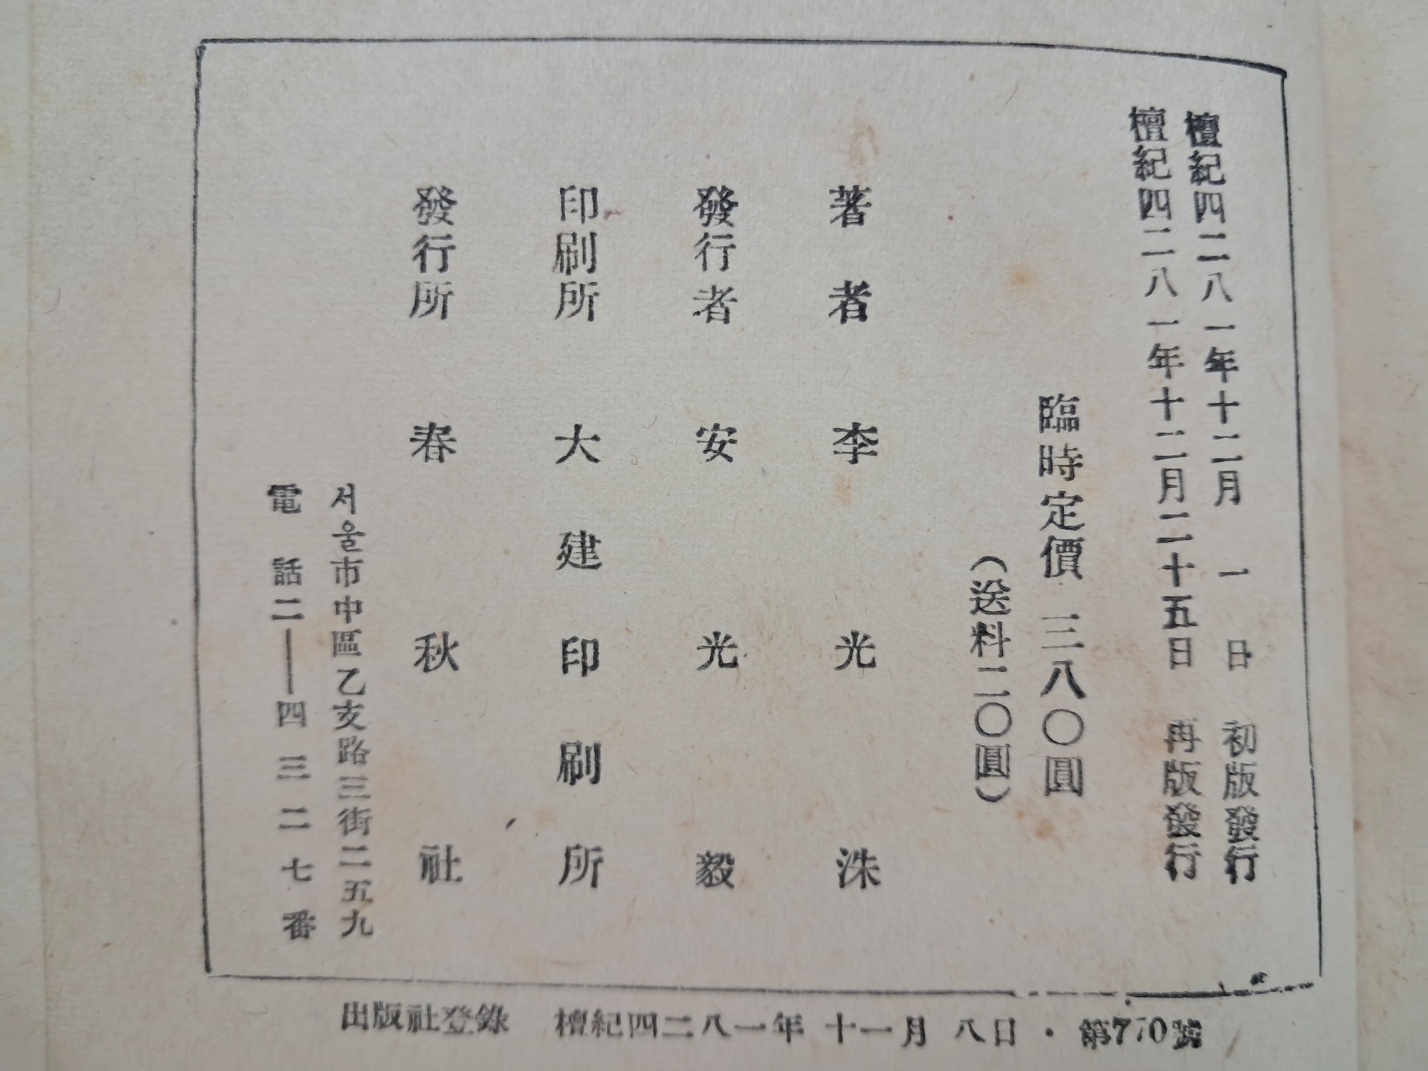 檀紀四二八一年十二月 一 日 初版發行
檀紀四二八一年十二月二十五日 再版發行
臨時定價 三八〇圓
(送料二〇圓)
著者 李光洙
發行者 安光毅
印刷所 大建印刷所
發行所 春秋社
서울市中區乙支路三街二五九
電話二—四三二七番
出版社登錄 檀紀四二八一年 十一月 八日・第770號